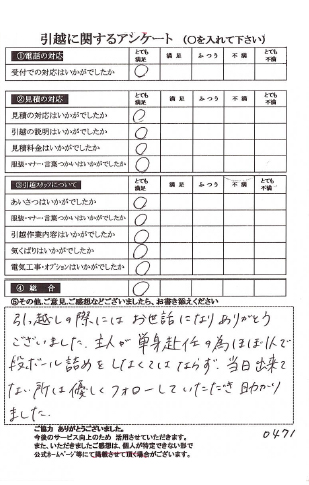 引越に関するアンケート (〇を入れて下さい)
①電話の対応 とても満足 満足 ふつう 不満 とても不満
受付での対応はいかがでしたか 〇
②見積の対応 とても満足 満足 ふつう 不満 とても不満
見積の対応はいかがでしたか 〇
引越の説明はいかがでしたか 〇
見積料金はいかがでしたか 〇
服装・マナー・言葉つかいはいかがでしたか 〇
③引越スタッフについて とても満足 満足 ふつう 不満 とても不満
あいさつはいかがでしたか 〇
服装・マナー・言葉つかいはいかがでしたか 〇
引越作業内容はいかがでしたか 〇
気くばりはいかがでしたか 〇
電気工事・オプションはいかがでしたか 〇
④ 総合 〇
⑤その他、ご意見、ご感想などございましたら、お書き添えください
引っ越しの際にはお世話になりありがとう
ございました。主人が単身赴任の為ほぼ1人で
段ボール詰めをしなくてはならず、当日出来て
ない所は優しくフォローしていただき助かり
ました。
ご協力 ありがとうございました。
今後のサービス向上のため 活用させていただきます。
また、いただきましたご感想は、個人が特定できない形で
公式ホームページ等にて掲載させて頂く場合がございます。
0471